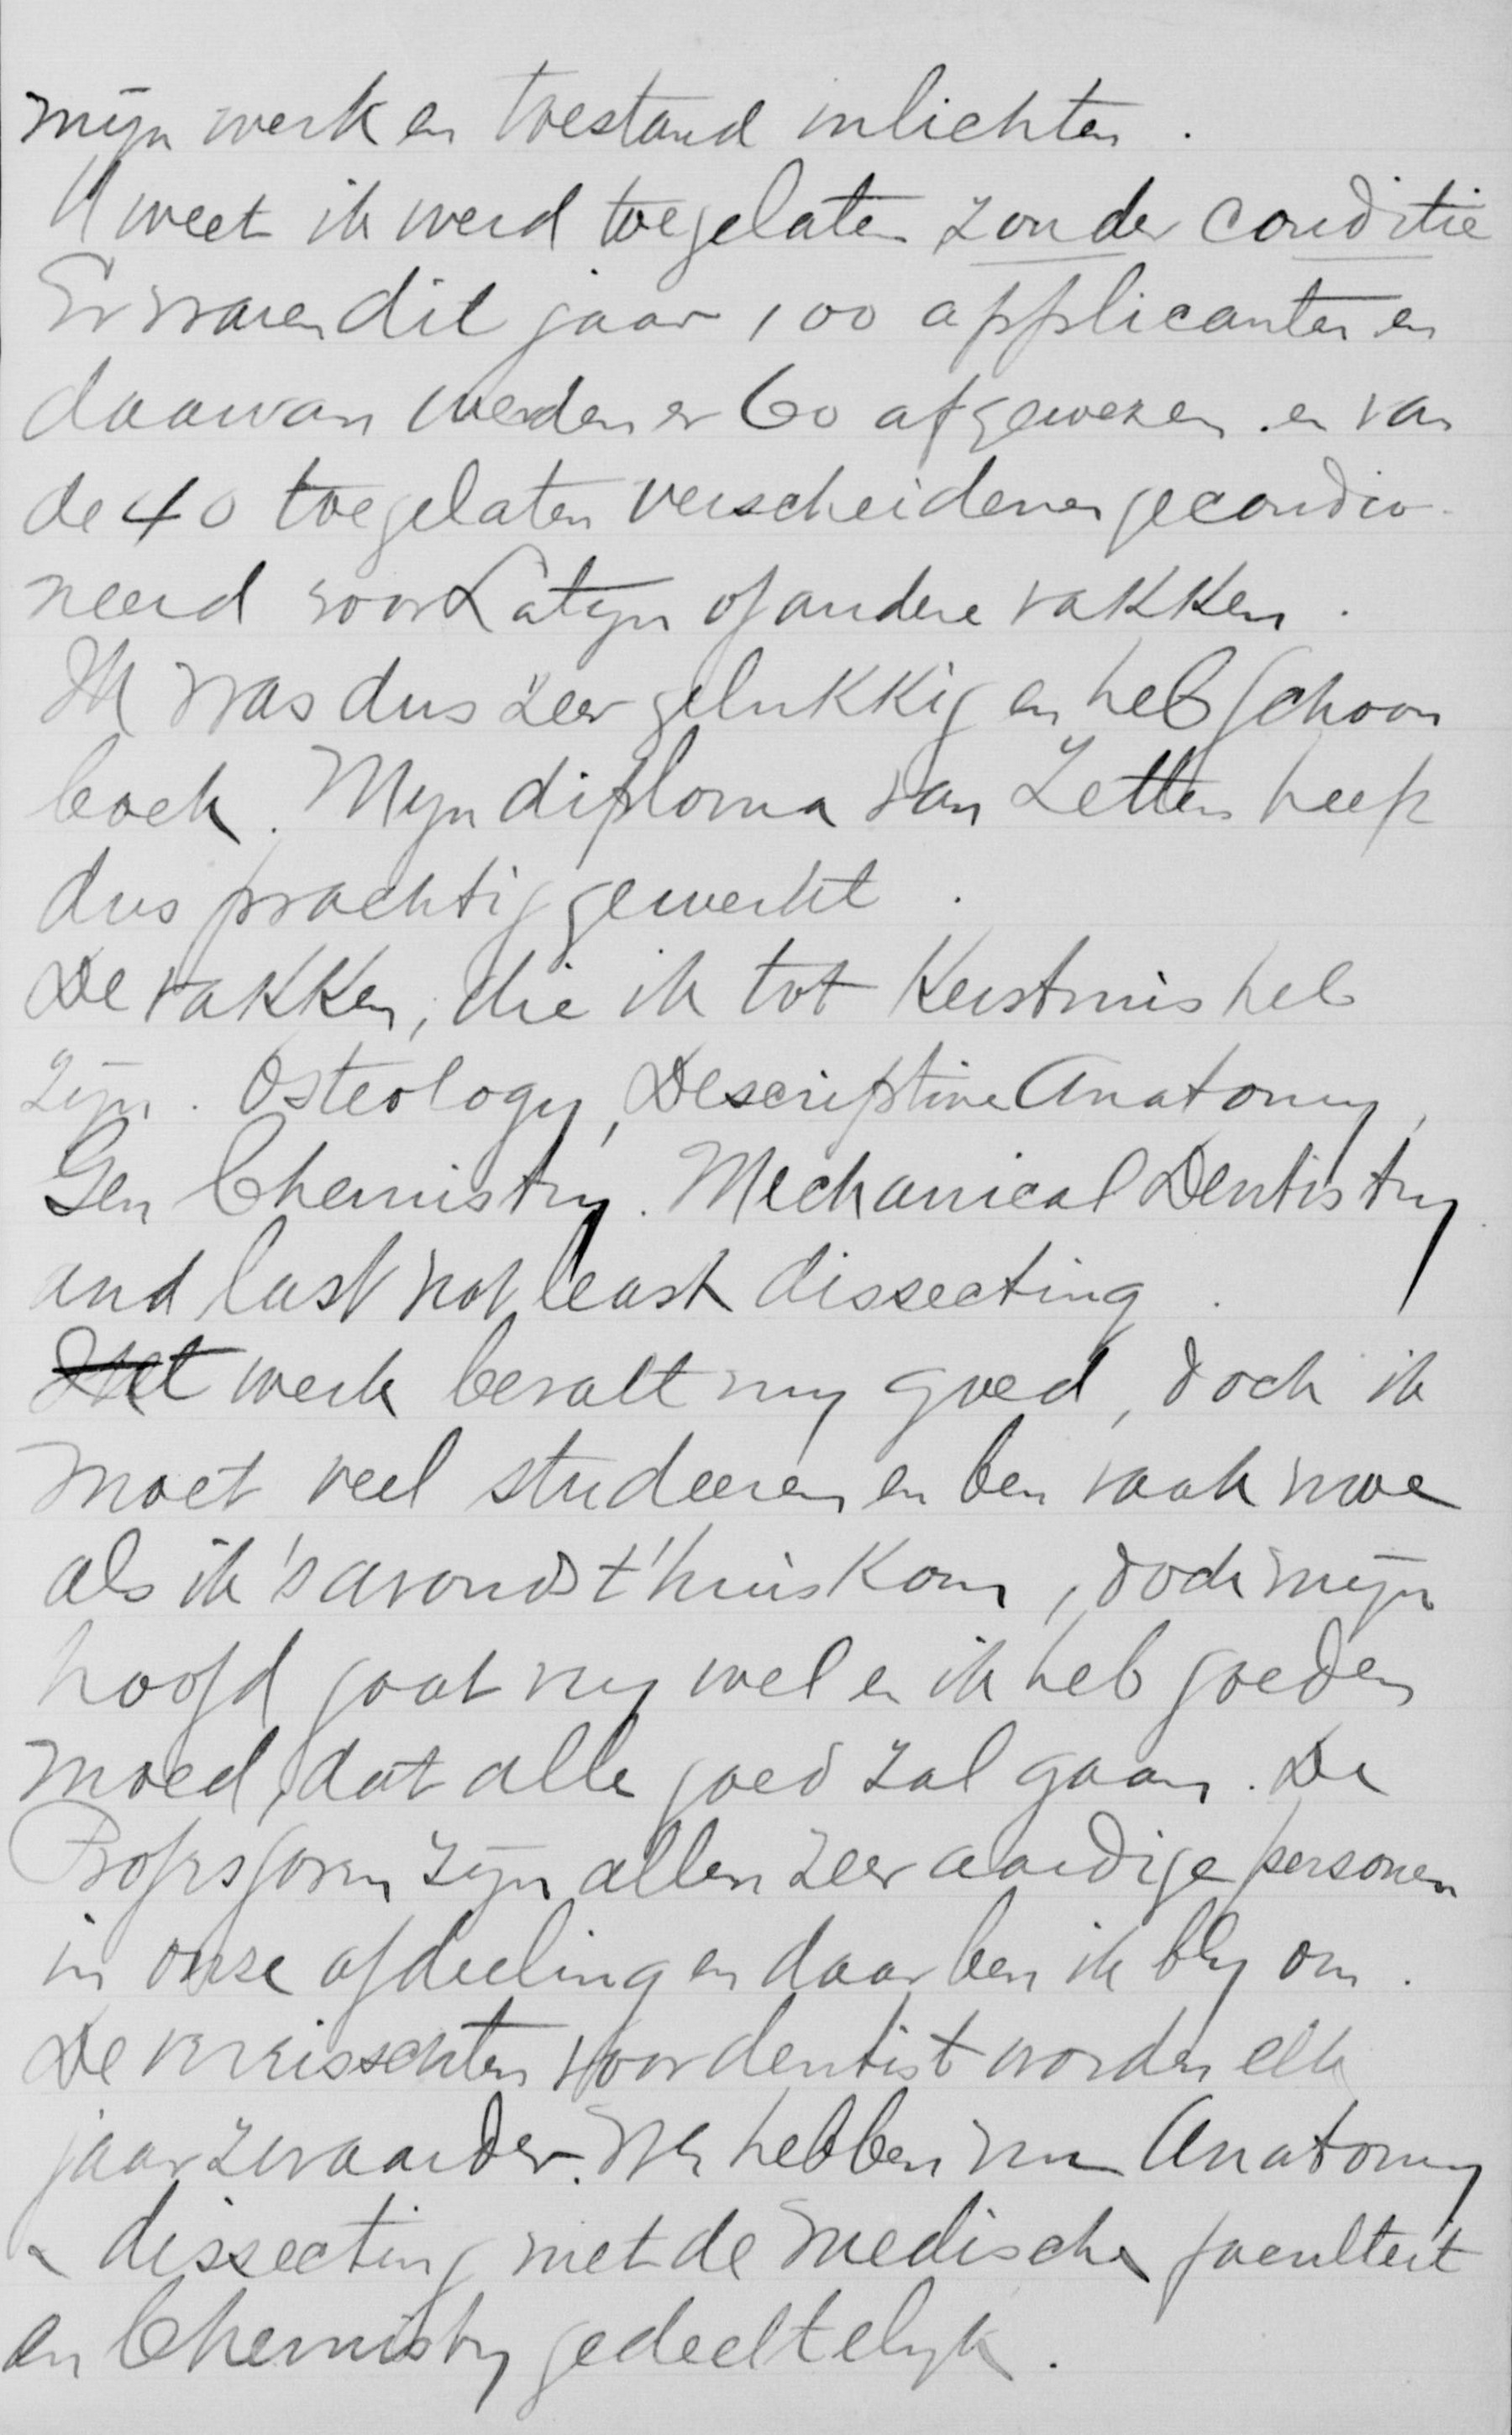 mijn werk en toestand inlichten.
U weet ik werd toegelaten zonder conditie
Er waren dit jaar 100 applicanten en
daarvan werden er 60 afgewezen en van
de 40 toegelaten verscheidenen gecondio-
neerd voor Latijn of andere vakken.
Ik was dus zeer gelukkig en heb schoon
boek. Myn diploma van Zetten heeft
dus prachtig gewerkt.
De vakken, die ik tot Kerstmis heb
zijn. Osteology, Descriptive Anatomy,
Gen Chemistry. Mechanical Dentistry
and last not least dissecting.
Het werk bevalt my goed, doch ik
moet veel studeeren en ben vaak moe
als ik 's avonds t'huis kom, doch mijn
hoofd gaat my wel en ik heb goeden
moed, dat alle goed zal gaan. De
Professoren zijn allen zeer aardige personen
in onze afdeeling en daar ben ik bly om.
De vereisschten voor dentist worden elk
jaar zwaarder. We hebben nu Anatomy
& dissecting met de medische faculteit
en Chemistry gedeeltelyk.